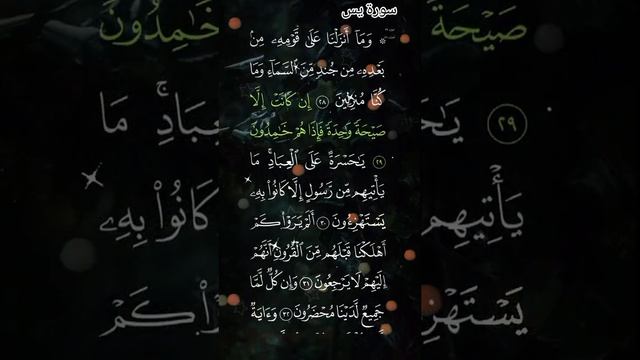 سورة يس
۞ وَمَآ أَنزَلْنَا عَلَىٰ قَوْمِهِۦ مِنۢ
بَعْدِهِۦ مِن جُندٍ مِّنَ ٱلسَّمَآءِ وَمَا
كُنَّا مُنزِلِينَ ٢٨ إِن كَانَتْ إِلَّا
صَيْحَةً وَٰحِدَةً فَإِذَا هُمْ خَٰمِدُونَ
٢٩ يَٰحَسْرَةً عَلَى ٱلْعِبَادِ ۚ مَا
يَأْتِيهِم مِّن رَّسُولٍ إِلَّا كَانُوا۟ بِهِۦ
يَسْتَهْزِءُونَ ٣٠ أَلَمْ يَرَوْا۟ كَمْ
أَهْلَكْنَا قَبْلَهُم مِّنَ ٱلْقُرُونِ أَنَّهُمْ
إِلَيْهِمْ لَا يَرْجِعُونَ ٣١ وَإِن كُلٌّ لَّمَّا
جَمِيعٌ لَّدَيْنَا مُحْضَرُونَ ٣٢ وَءَايَةٌ